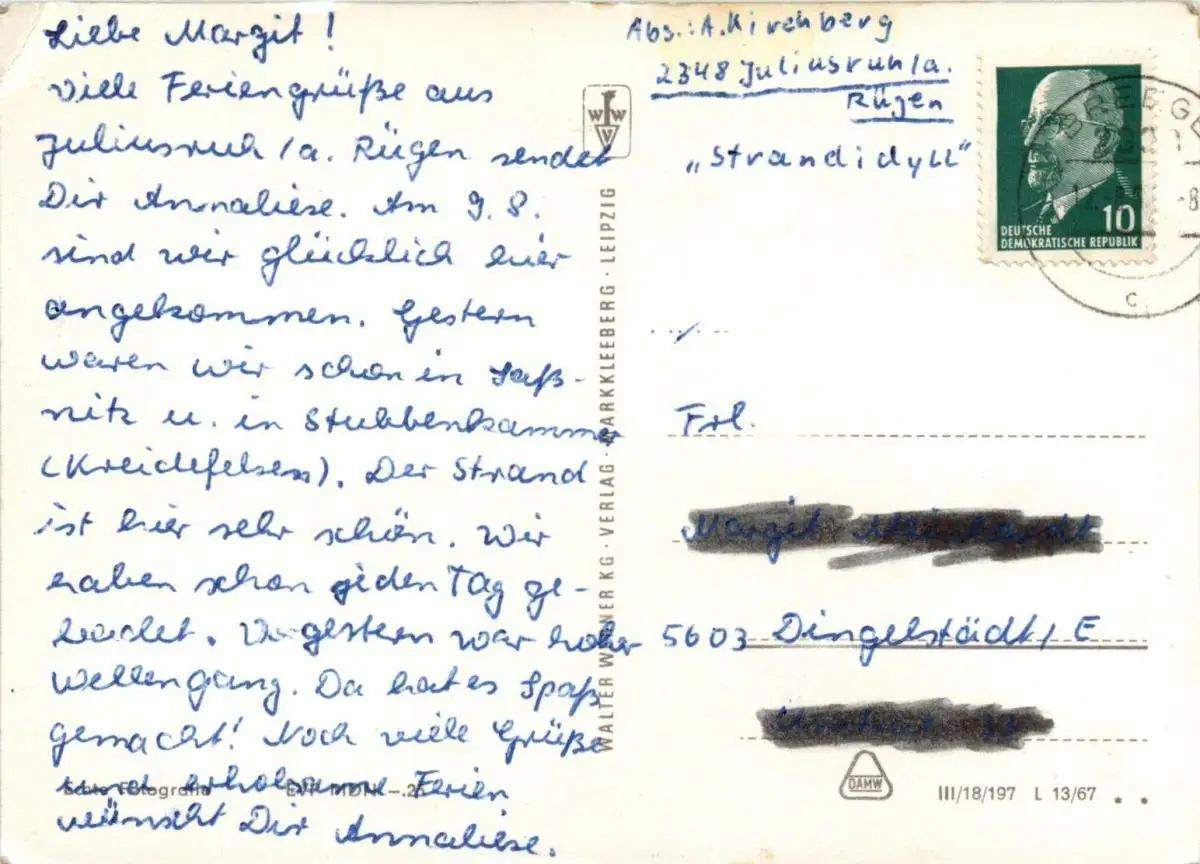 Liebe Margit!
viele Feriengrüße aus
Juliusruh/a. Rügen sendet
Dir Annaliese. Am 9.8.
sind wir glücklich hier
angekommen. Gestern
waren wir schon in Saß-
nitz u. in Stubbenkammer
(Kreidefelsen). Der Strand
ist hier sehr schön. Wir
haben schon jeden Tag ge-
badet. Vorgestern war hoher
Wellengang. Da hat es Spaß
gemacht! Noch viele Grüße
und erholsame Ferien
wünscht Dir Annaliese.
Echte Fotografie EVP MDN -.25
WALTER WERNER KG · VERLAG · MARKKLEEBERG · LEIPZIG
W W V
Abs.: A. Kirchberg
2348 Juliusruh/a.
Rügen
„Strandidyll"
10
DEUTSCHE
DEMOKRATISCHE REPUBLIK
BREEGE
-8
c
Frl.
Margit
5603 Dingelstädt/E
DAMW
III/18/197 L 13/67